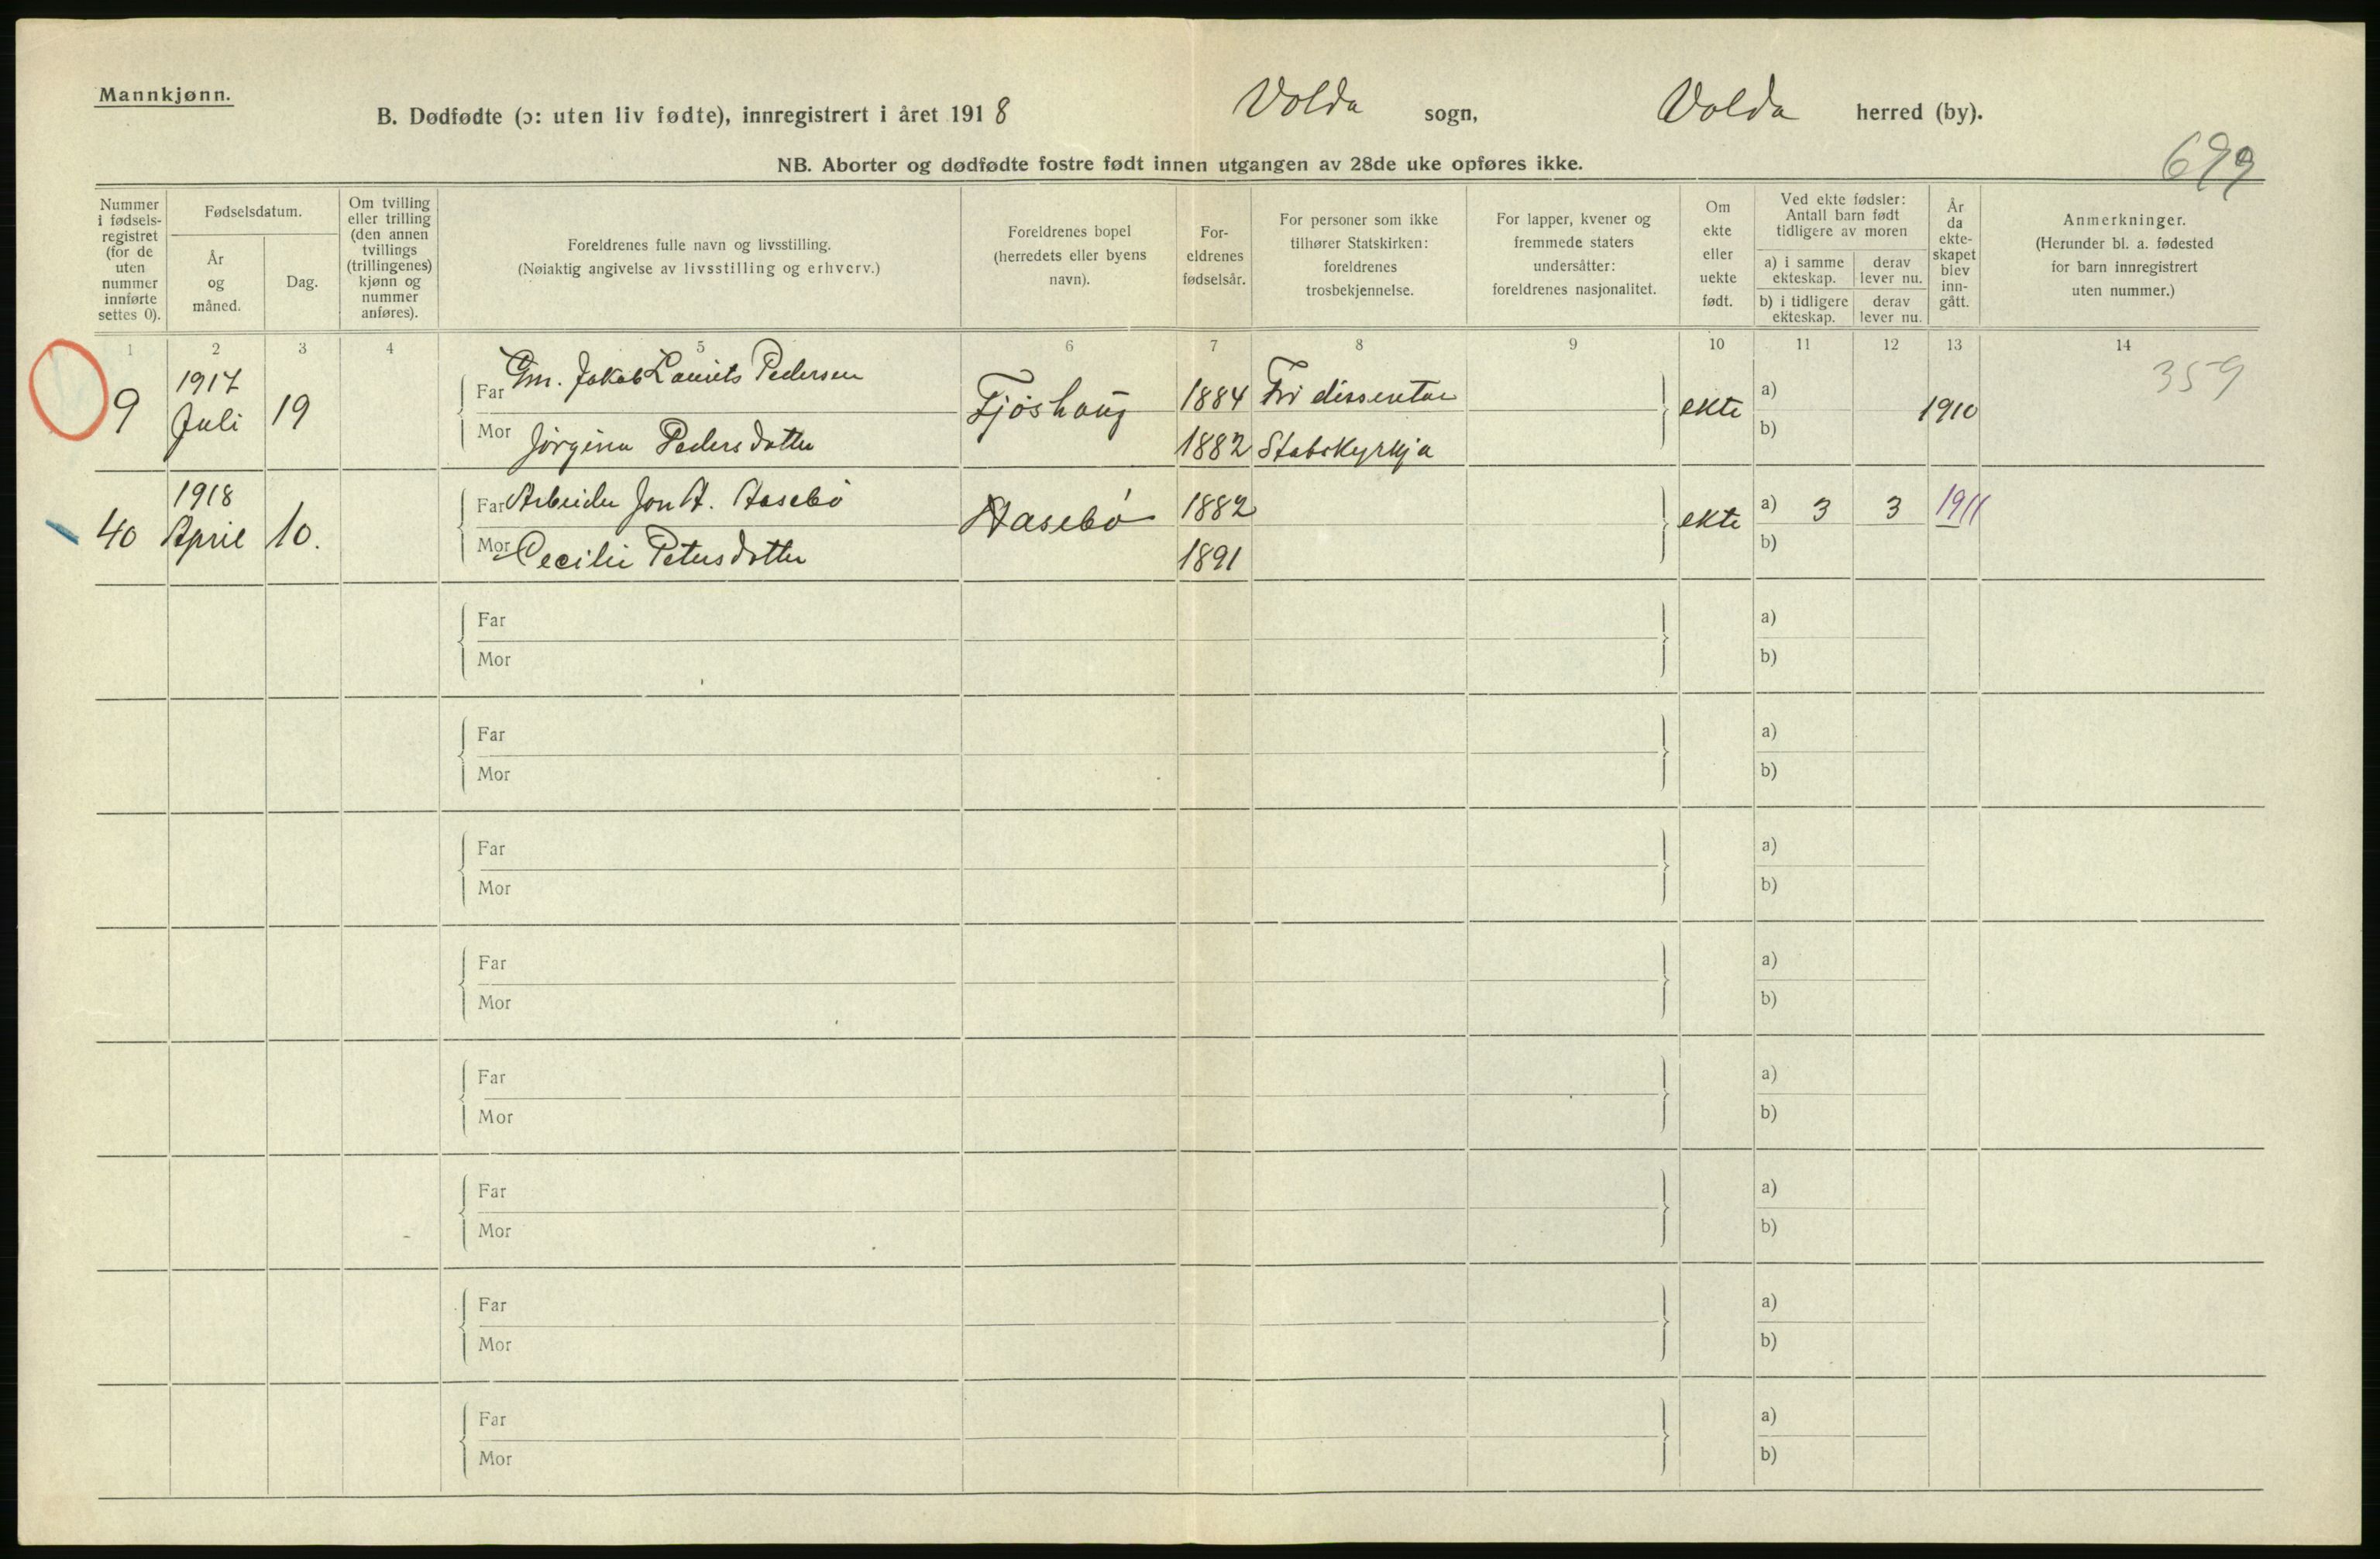 Mannkjønn.
B. Dødfødte (ɔ: uten liv fødte), innregistrert i året 1918 Volda sogn, Volda herred (by).
NB. Aborter og dødfødte fostre født innen utgangen av 28de uke opføres ikke.
699
Nummer i fødselsregistret (for de uten nummer innførte settes 0).
Fødselsdatum.
År og måned.
Dag.
Om tvilling eller trilling (den annen tvillings (trillingenes) kjønn og nummer anføres).
Foreldrenes fulle navn og livsstilling.
(Nøiaktig angivelse av livsstilling og erhverv.)
Foreldrenes bopel (herredets eller byens navn).
Foreldrenes fødselsår.
For personer som ikke tilhører Statskirken: foreldrenes trosbekjennelse.
For lapper, kvener og fremmede staters undersåtter: foreldrenes nasjonalitet.
Om ekte eller uekte født.
Ved ekte fødsler: Antall barn født tidligere av moren
a) i samme ekteskap. derav lever nu.
b) i tidligere ekteskap. derav lever nu.
År da ekteskapet blev inngått.
Anmerkninger.
(Herunder bl. a. fødested for barn innregistrert uten nummer.)
1 2 3 4 5 6 7 8 9 10 11 12 13 14
359
9 1917 Juli 19 Far Gm. Jakob Laurits Pedersen Fjøshaug 1884 Fri dissentar ekte a) 1910
Mor Jørgina Pedersdotter 1882 Statskyrkja b)
40 1918 April 10. Far Arbeider Jon A. Aasebø Aasebø 1882 ekte a) 3 3 1911
Mor Cecilie Petersdotter 1891 b)
Far a)
Mor b)
Far a)
Mor b)
Far a)
Mor b)
Far a)
Mor b)
Far a)
Mor b)
Far a)
Mor b)
Far a)
Mor b)
Far a)
Mor b)